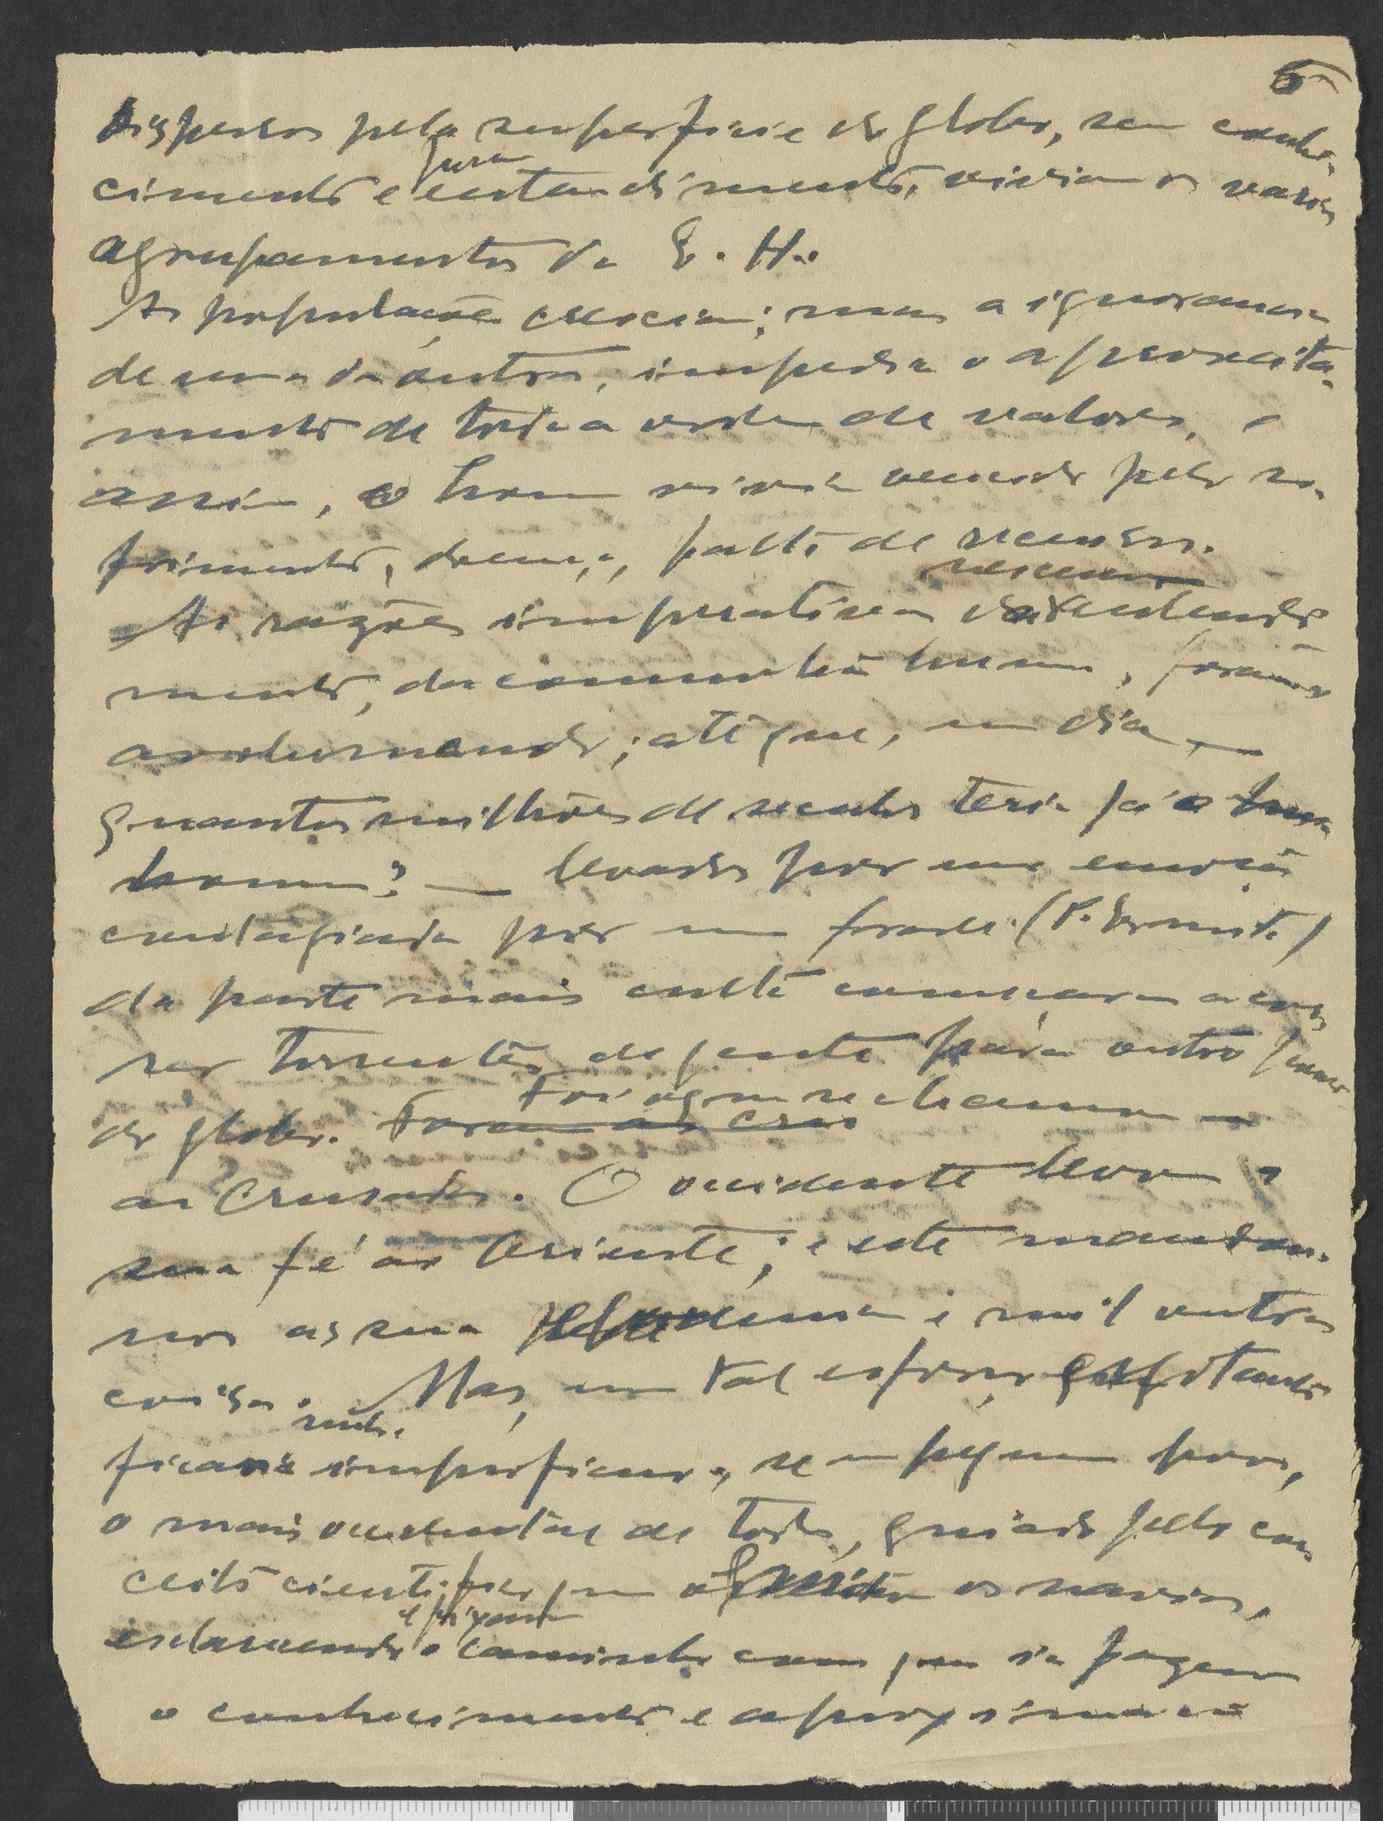 5
dispersos pela superficie do globo, sem conhe-
cimento e entendimento, viviam os varios
agrupamentos da E. H..
As populações cresciam; mas a ignorancia
de uma da outra, impedia o aproveita-
mento de toda a ordem de valores, e
assim, o homem vivia vencido pelo so-
frimento, doença, falta de recursos.
As razões imperativas do entendi
mento, da communhão humana, foram
avolumando; até que, um dia, —
quantos milhões de seculos teria já o
homem? — levados por uma emoção
contagiada por um frade (P. Ermita)
da parte mais culta começaram a cor
rer torrentes de gente para outro
do globo. Foram as cru
Foi o que se chamou
as Crusadas. O ocidente levou a
sua fé ao Oriente; e este mandou-
nos a sua e mil outras
coisas. Mas, um tal esforço
ficaria improficuo, se um pequeno povo,
o mais occidental de todos, guiado pelo con
ceito cientifico, que os navios,
esclarecendo o caminho com que se fazem
o conhecimento e aproximação